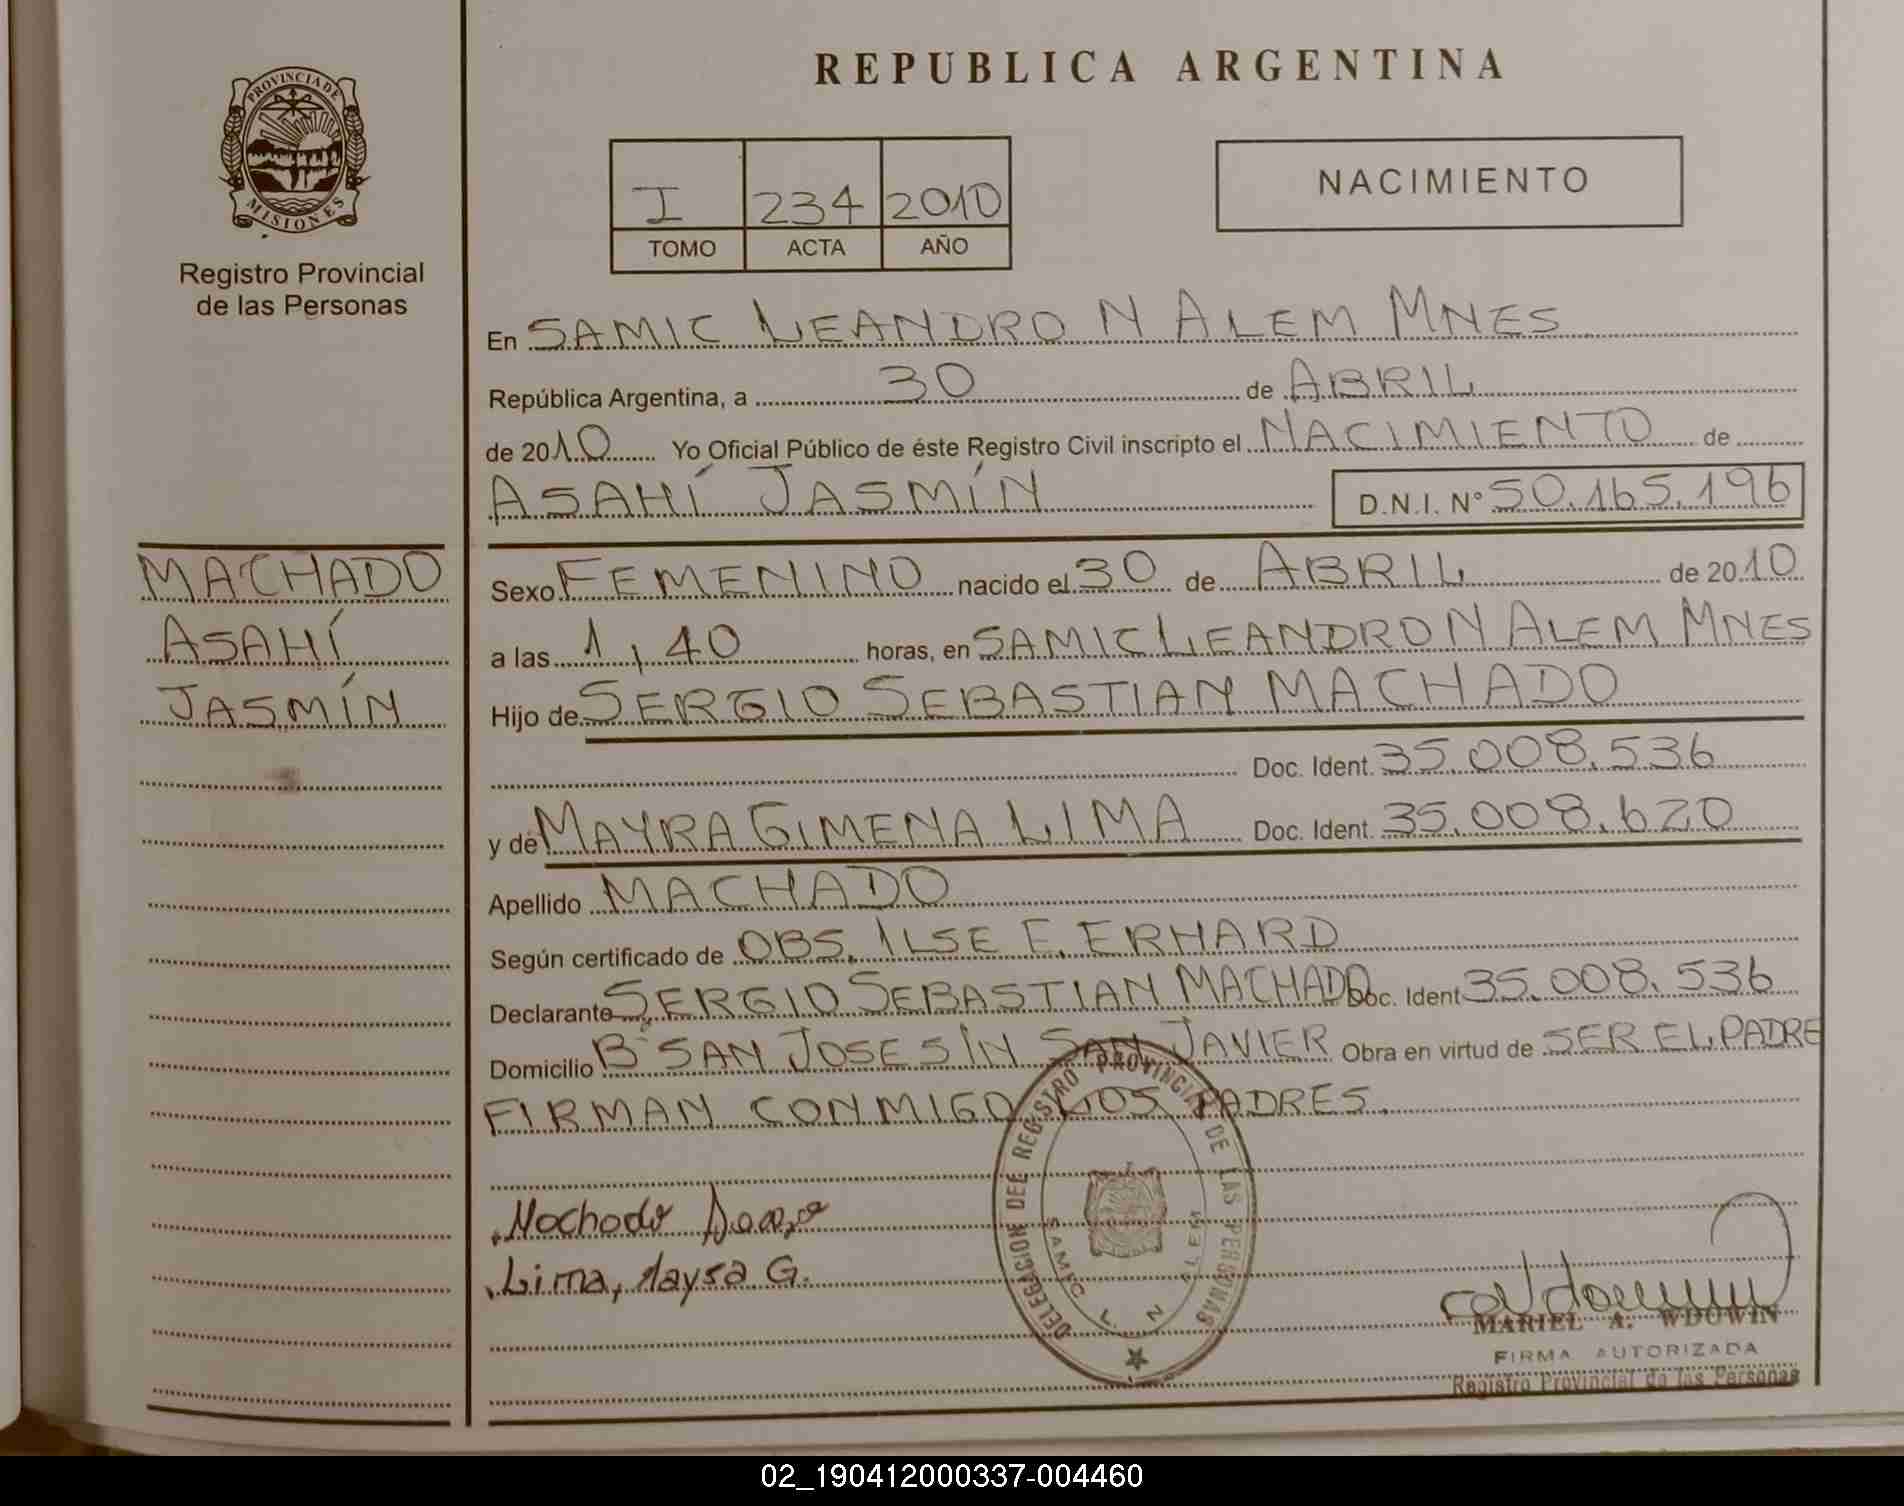 REPUBLICA ARGENTINA
PROVINCIA DE
MISIONES
Registro Provincial
de las Personas
I 234 2010
TOMO ACTA AÑO
NACIMIENTO
En SAMIC LEANDRO N ALEM MNES
República Argentina, a 30 de ABRIL
de 2010 Yo Oficial Público de éste Registro Civil inscripto el NACIMIENTO de
ASAHÍ JASMÍN D.N.I. N° 50.165.196
MACHADO
ASAHÍ
JASMÍN
Sexo FEMENINO nacido el 30 de ABRIL de 2010
a las 1,40 horas, en SAMIC LEANDRO N ALEM MNES
Hijo de SERGIO SEBASTIAN MACHADO
Doc. Ident. 35.008.536
y de MAYRA GIMENA LIMA Doc. Ident. 35.008.620
Apellido MACHADO
Según certificado de OBS. ILSE E. ERHARD
Declarante SERGIO SEBASTIAN MACHADO Doc. Ident 35.008.536
Domicilio B° SAN JOSE S/N SAN JAVIER Obra en virtud de SER EL PADRE
FIRMAN CONMIGO LOS PADRES.
Machado
Lima, Mayra G.
DELEGACION DEL REGISTRO PROVINCIAL DE LAS PERSONAS
SAMIC L. N. ALEM
MARIEL A. WDOWIN
FIRMA AUTORIZADA
Registro Provincial de las Personas
02_190412000337-004460